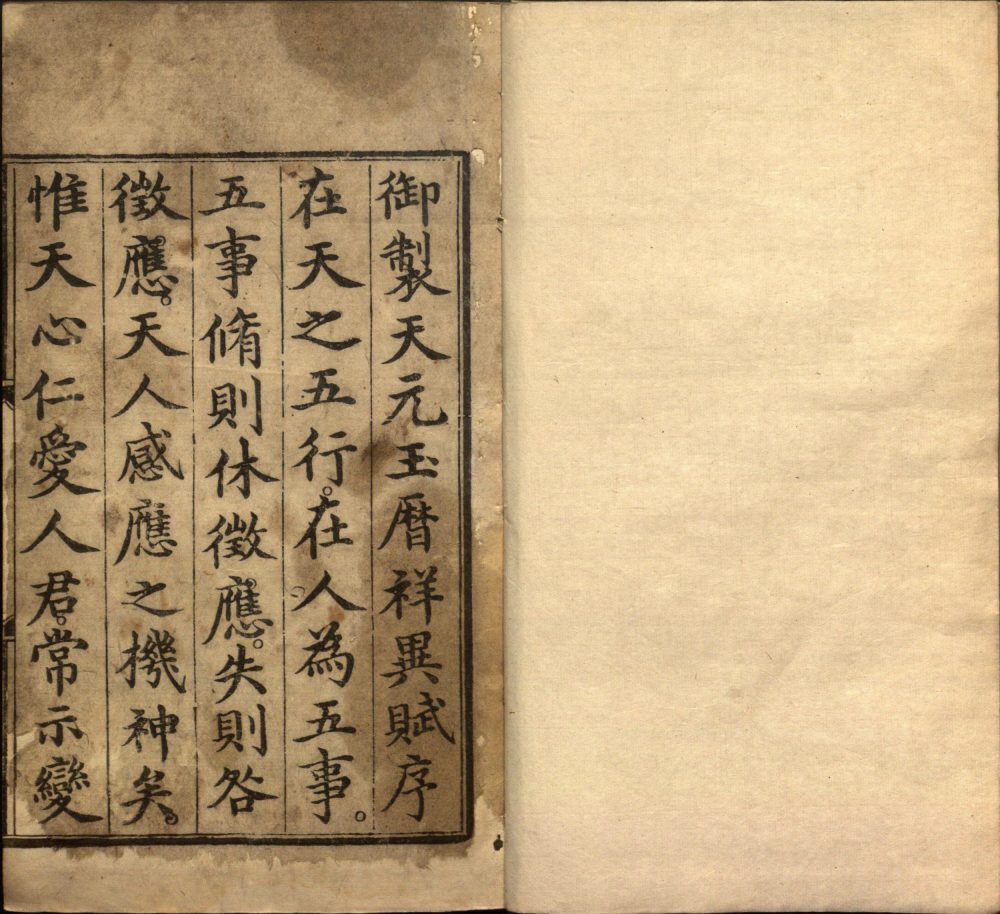 御製天元玉曆祥異賦序
在天之五行。在人為五事。
五事脩則休徵應。失則咎
徵應。天人感應之機神矣。
惟天心仁愛人君。常示變